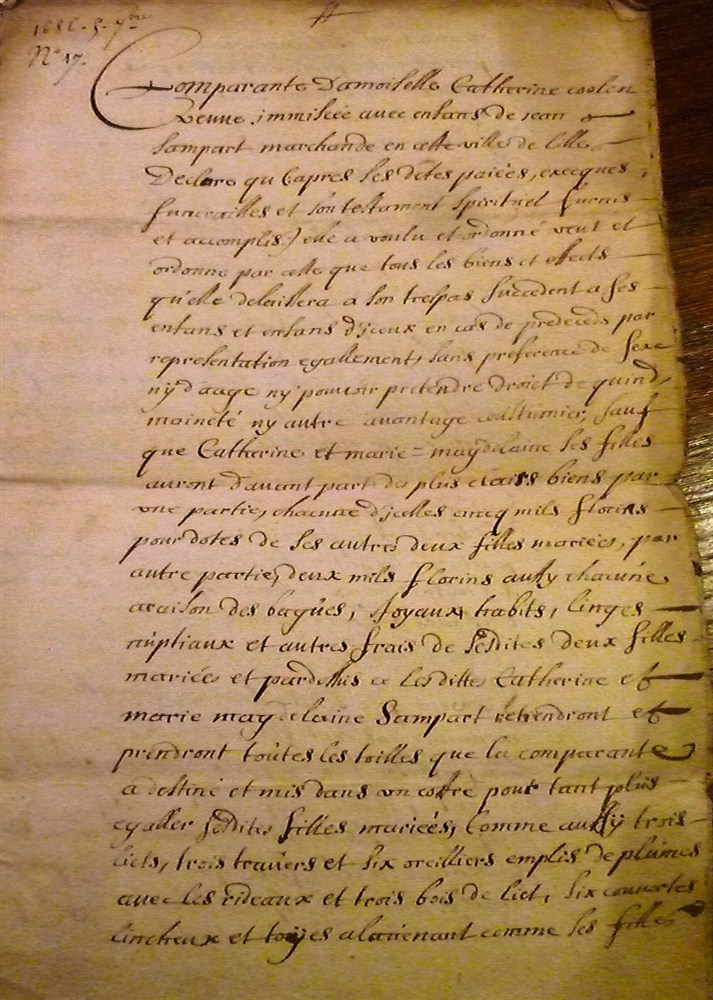 1686 - 5 - 7bre
No 17.
Comparante Damoiselle Catherine coolen
Veuve immiscée avec enfans de jean
Sampart marchande en cette ville de lille
Declare qu'apres ses dêtes paiées, execques
funerailles et son testament spirituel furnis
et accomplis) elle a voulu et ordonné veut et
ordonne par cette que tous les biens et effects
qu'elle delaissera a son trespas succedent a ses
enfans et enfans d'jceux en cas de predeceds par
representation egallement, sans preference de sexe
ny d'aage ny pouvoir pretendre droict de quind,
maineté ny autre avantage coustumier, sauf
que Catherine et marie = magdelaine ses filles
auront d'avant part des plus clairs biens par
vne partie, chacune d'jcelles cincq mils florins
pour dotes de ses autres deux filles mariées, par
autre partie, deux mils florins aussy chacune
araison des bagues, Joyaux, habits, linges
nuptiaux et autres frais de sesdites deux filles
mariées et pardessus ce lesdittes Catherine et
marie magdelaine Sampart retiendront et
prendront toutes les toilles que la comparante
a destiné et mis dans vn coffre pour tant plus
egaller sesdites filles mariées, Comme aussÿ trois
licts, trois travers et six oreilliers emplis de plumes
avec les rideaux et trois bois de lict, six couvertes
lincheux et toÿes alavenant comme ses filles